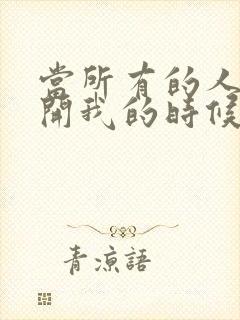 當所有的人
開我的時候
青涼語